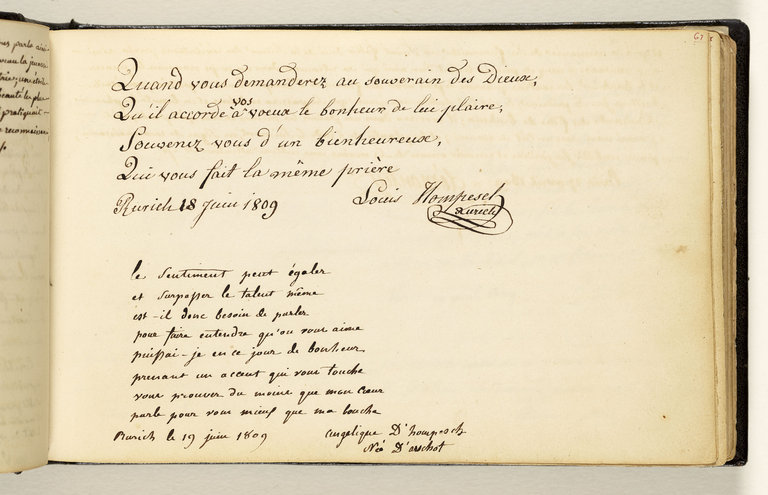 67
Quand vous demanderez au souverain des Dieux,
Qu'il accorde à vos voeux le bonheur de lui plaire,
Souvenez vous d'un bienheureux,
Qui vous fait la même prière
Rurich 18 Juin 1809 Louis Hompesch
Rurich
le Sentiment peut égaler
et surpasser le talent même
est-il donc besoin de parler
pour faire entendre qu'on vous aime
puissai-je en ce jour de bonheur
prenant un accent qui vous touche
vous prouver du moins que mon coeur
parle pour vous mieux que ma bouche
Rurich le 19 juin 1809 angelique D'hompesch
Née D'arschot